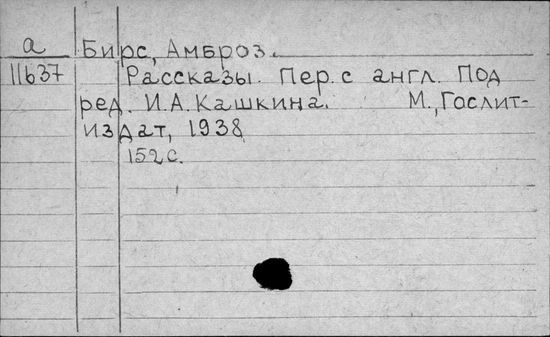 а
11637
Бирс, Амброз.
Рассказы. Пер. с англ. Под
ред. И.А. Кашкина. М., Гослит-
издат, 1938
152 с.